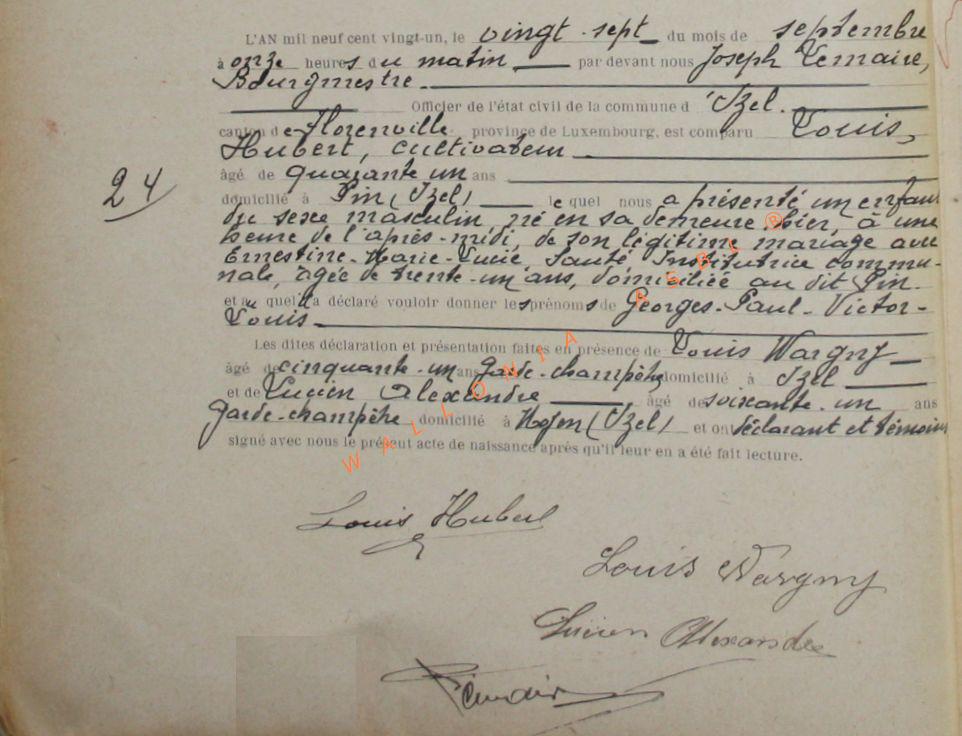 L'AN mil neuf cent vingt-un, le vingt-sept du mois de septembre
à onze heures du matin par devant nous Joseph Lemaire,
Bourgmestre
Officier de l'état civil de la commune d 'Izel.
canton de Florenville province de Luxembourg, est comparu Louis,
Hubert, cultivateur
âgé de quarante un ans
domicilié à Pin (Izel) lequel nous a présenté un enfant
du sexe masculin, né en sa demeure hier, à une
heure de l'après-midi, de son légitime mariage avec
Ernestine-Marie-Lucie Institutrice commu-
nale, âgée de trente-un ans, domiciliée au dit Pin.
et auquel il a déclaré vouloir donner les prénoms de Georges-Paul-Victor-
Louis
Les dites déclaration et présentation faites en présence de Louis Wargny
âgé de cinquante-un ans garde-champêtre domicilié à Izel
et de Lucien Alexandre âgé de soixante-un ans
garde-champêtre domicilié à (Izel) et ont déclarant et témoins
signé avec nous le présent acte de naissance après qu'il leur en a été fait lecture.
24
Louis Hubert
Louis Wargny
Lucien Alexandre
Lemaire